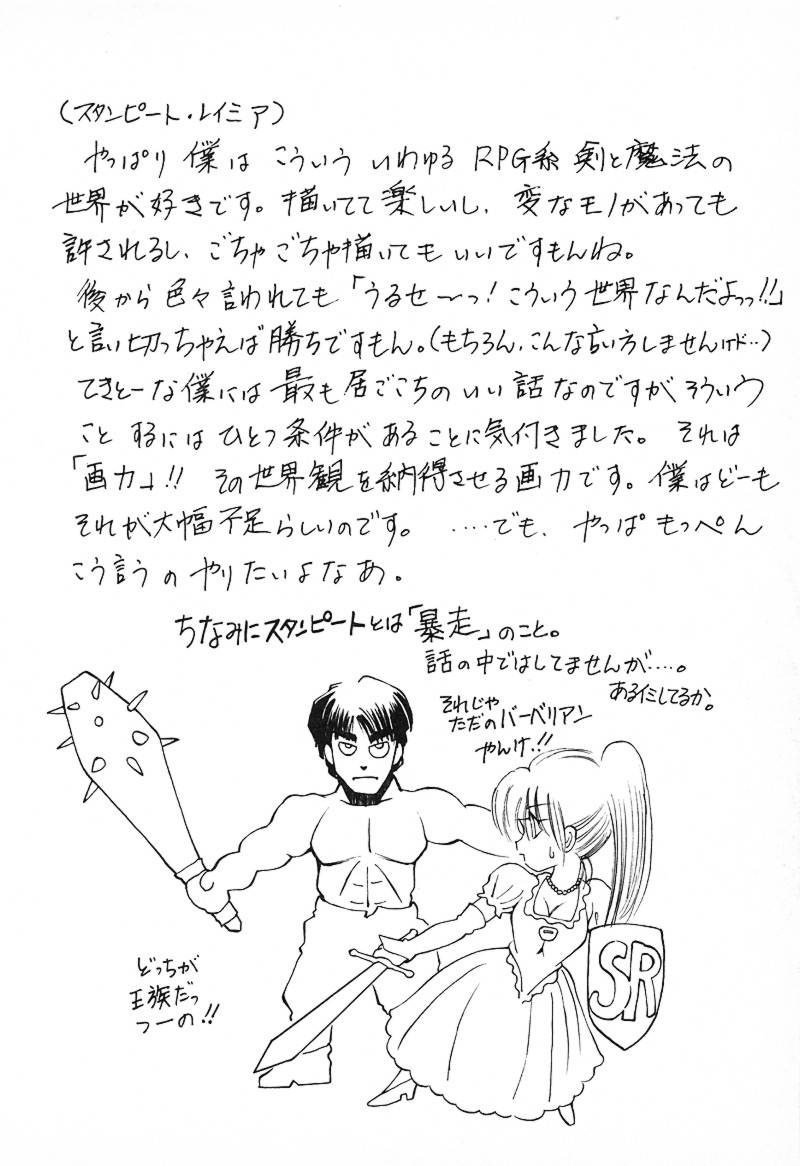 (スタンピート・レイミア)
やっぱり 僕は こういう いわゆる RPG系 剣と魔法の
世界が好きです。描いてて楽しいし、変なモノがあっても
許されるし、ごちゃごちゃ描いてもいいですもんね。
後から色々言われても「うるせ〜っ!こういう世界なんだよっっ!!」
と言い切っちゃえば勝ちですもん。(もちろん、こんな言い方しませんけド‥)
てきとーな僕には最も居ごこちのいい話なのですがそういう
こと するには ひとつ条件があることに気付きました。それは
「画力」!! その世界観を納得させる画力です。僕はどーも
それが大幅不足らしいのです。 ‥‥でも、やっぱ もっぺん
こう言うの やりたいよなあ。
ちなみにスタンピートとは「暴走」のこと。
話の中ではしてませんが‥‥。
ある意味してるか。
それじゃ
ただのバーベリアン
やんけ!!
どっちが
王族だっ
つーの!!
SR